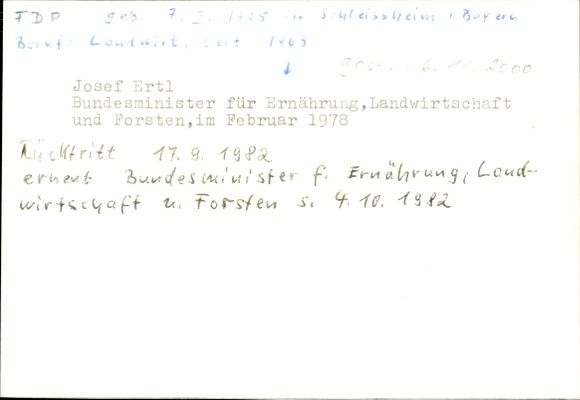 FDP geb. 7. 3. 1925 in Schleissheim, Bayern
Beruf: Landwirt, seit 1965
↓ gest. 6. 11. 2000
Josef Ertl
Bundesminister für Ernährung,Landwirtschaft
und Forsten,im Februar 1978
Rücktritt 17.9.1982
erneut Bundesminister f. Ernährung, Land-
wirtschaft u. Forsten s. 4.10.1982